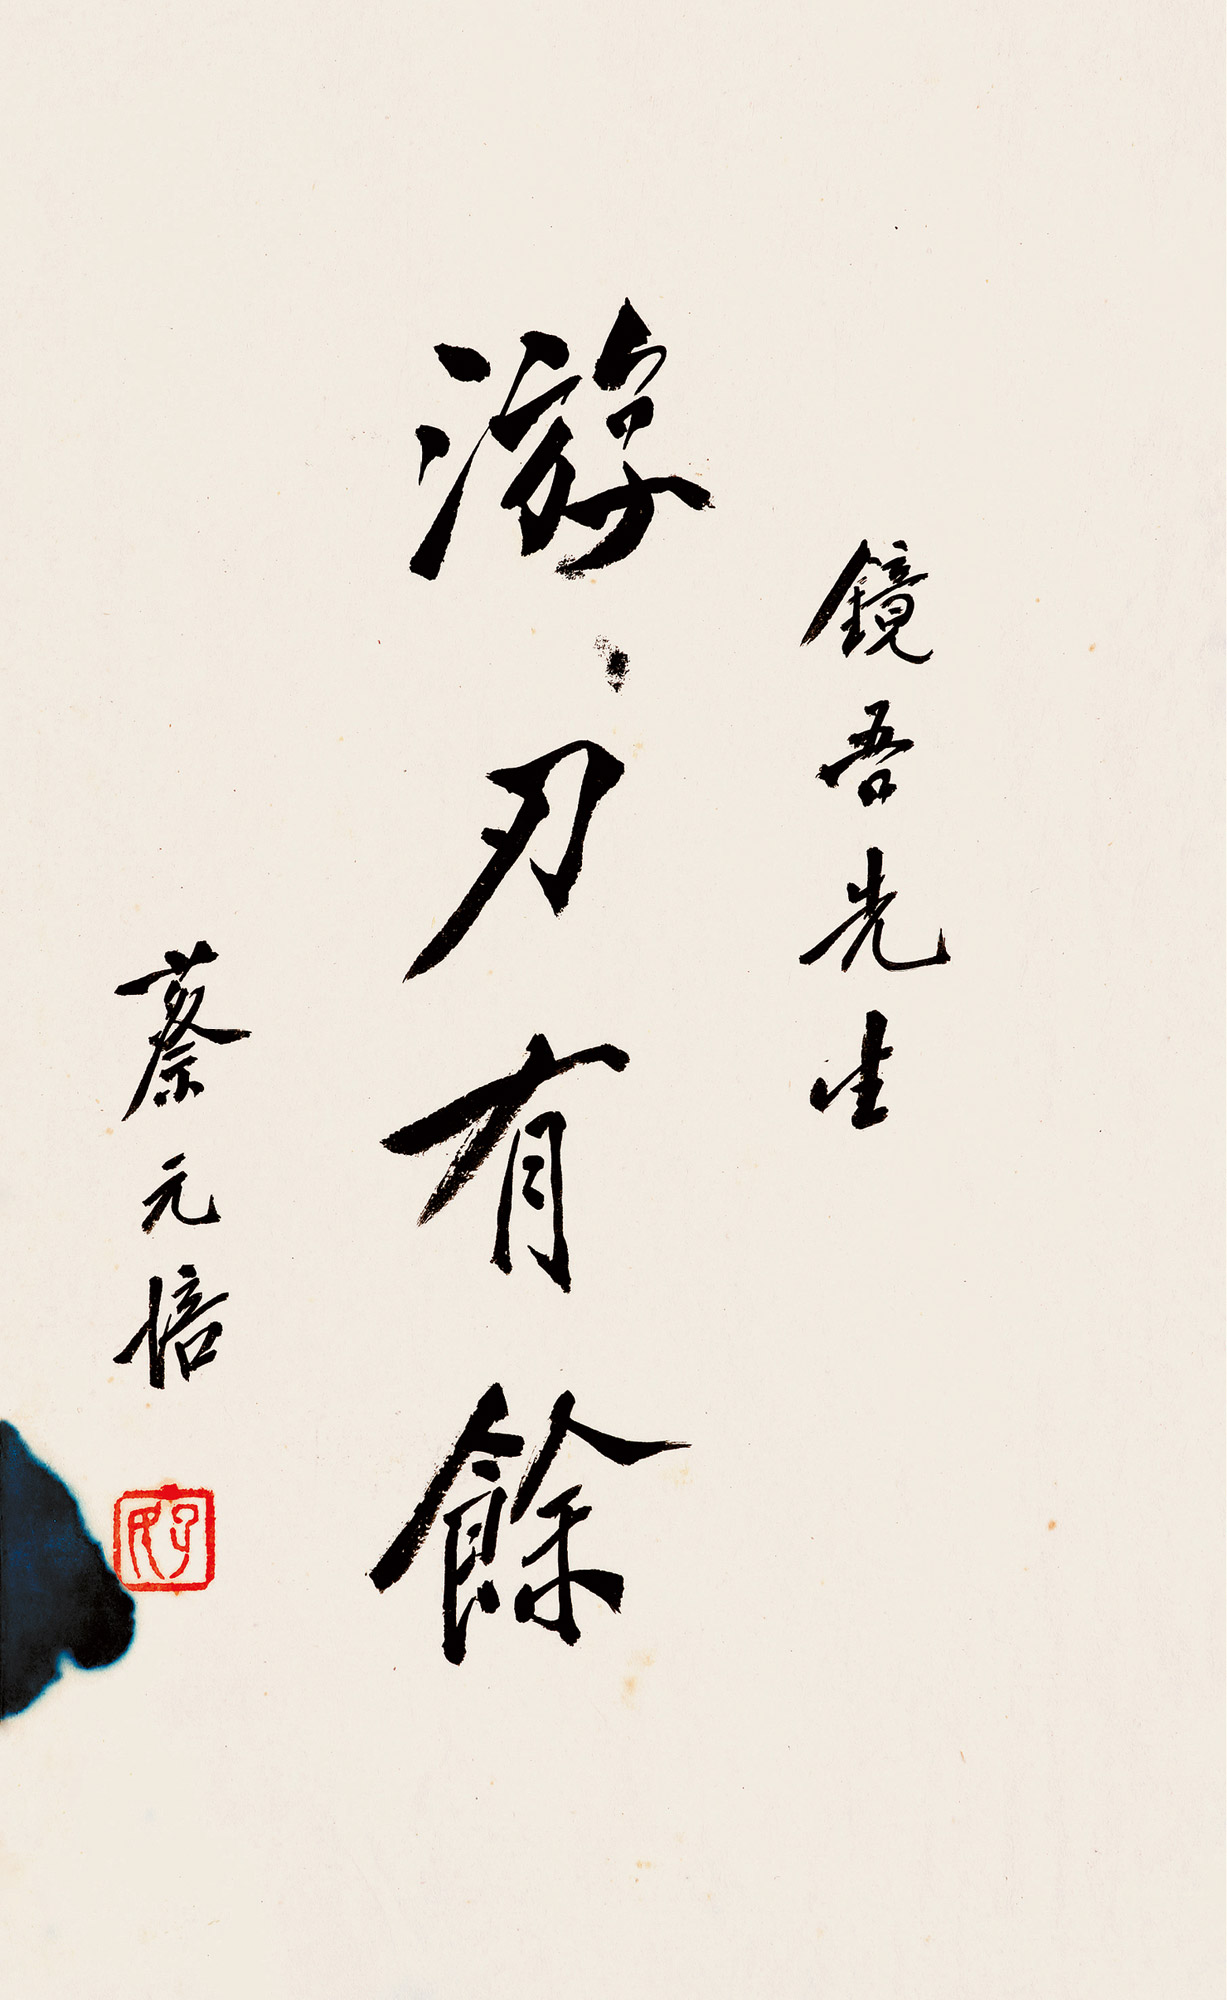 鏡吾先生
游刃有餘
蔡元培